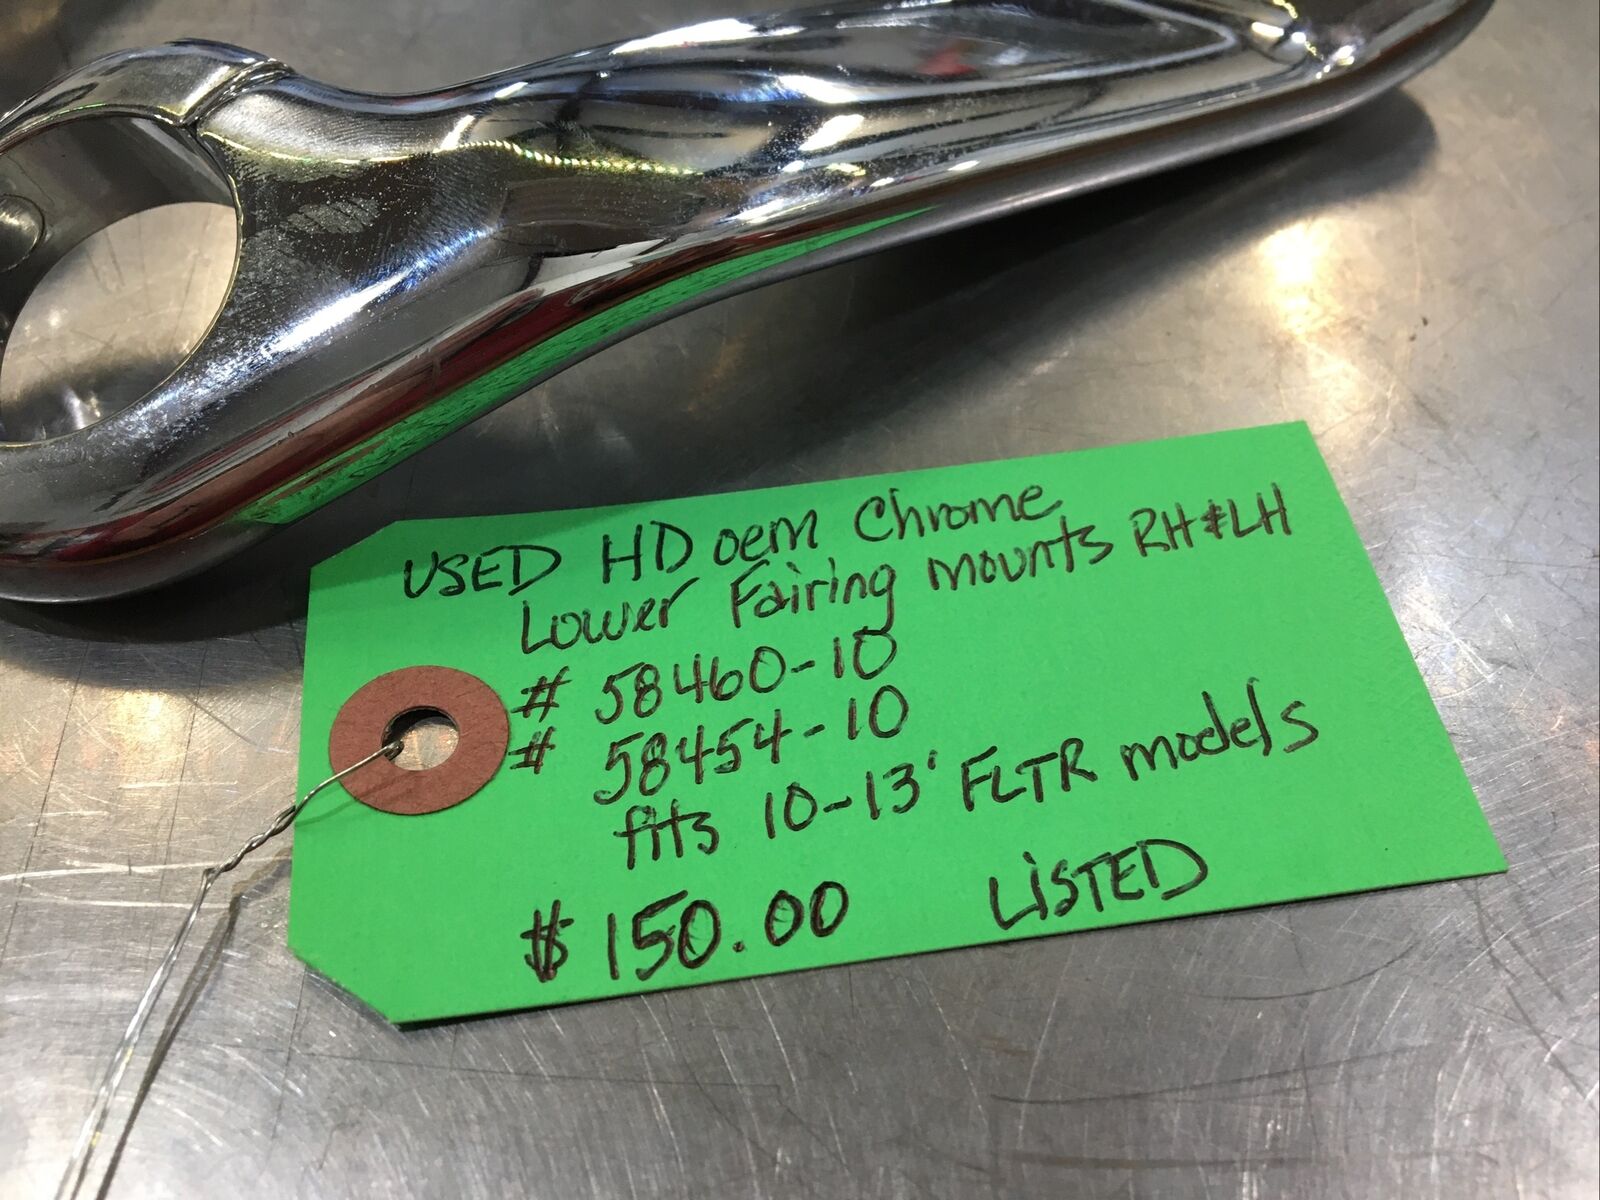 USED HD oem Chrome
Lower Fairing mounts RH & LH
# 58460-10
# 58454-10
fits 10-13' FLTR models
$ 150.00 LiSTED